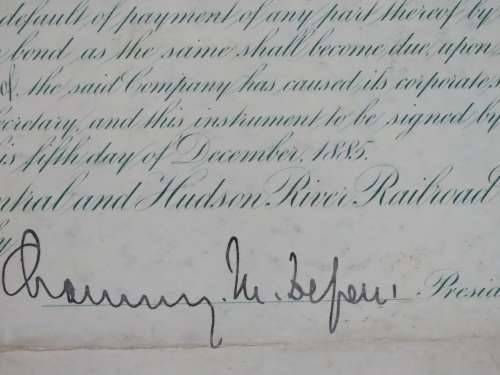 default of payment of any part thereof by
bond as the same shall become due, upon
of, the said Company has caused its corporate
cretary, and this instrument to be signed by
is fifth day of December, 1885.
ntral and Hudson River Railroad
Chauncey M. Depew. Presid